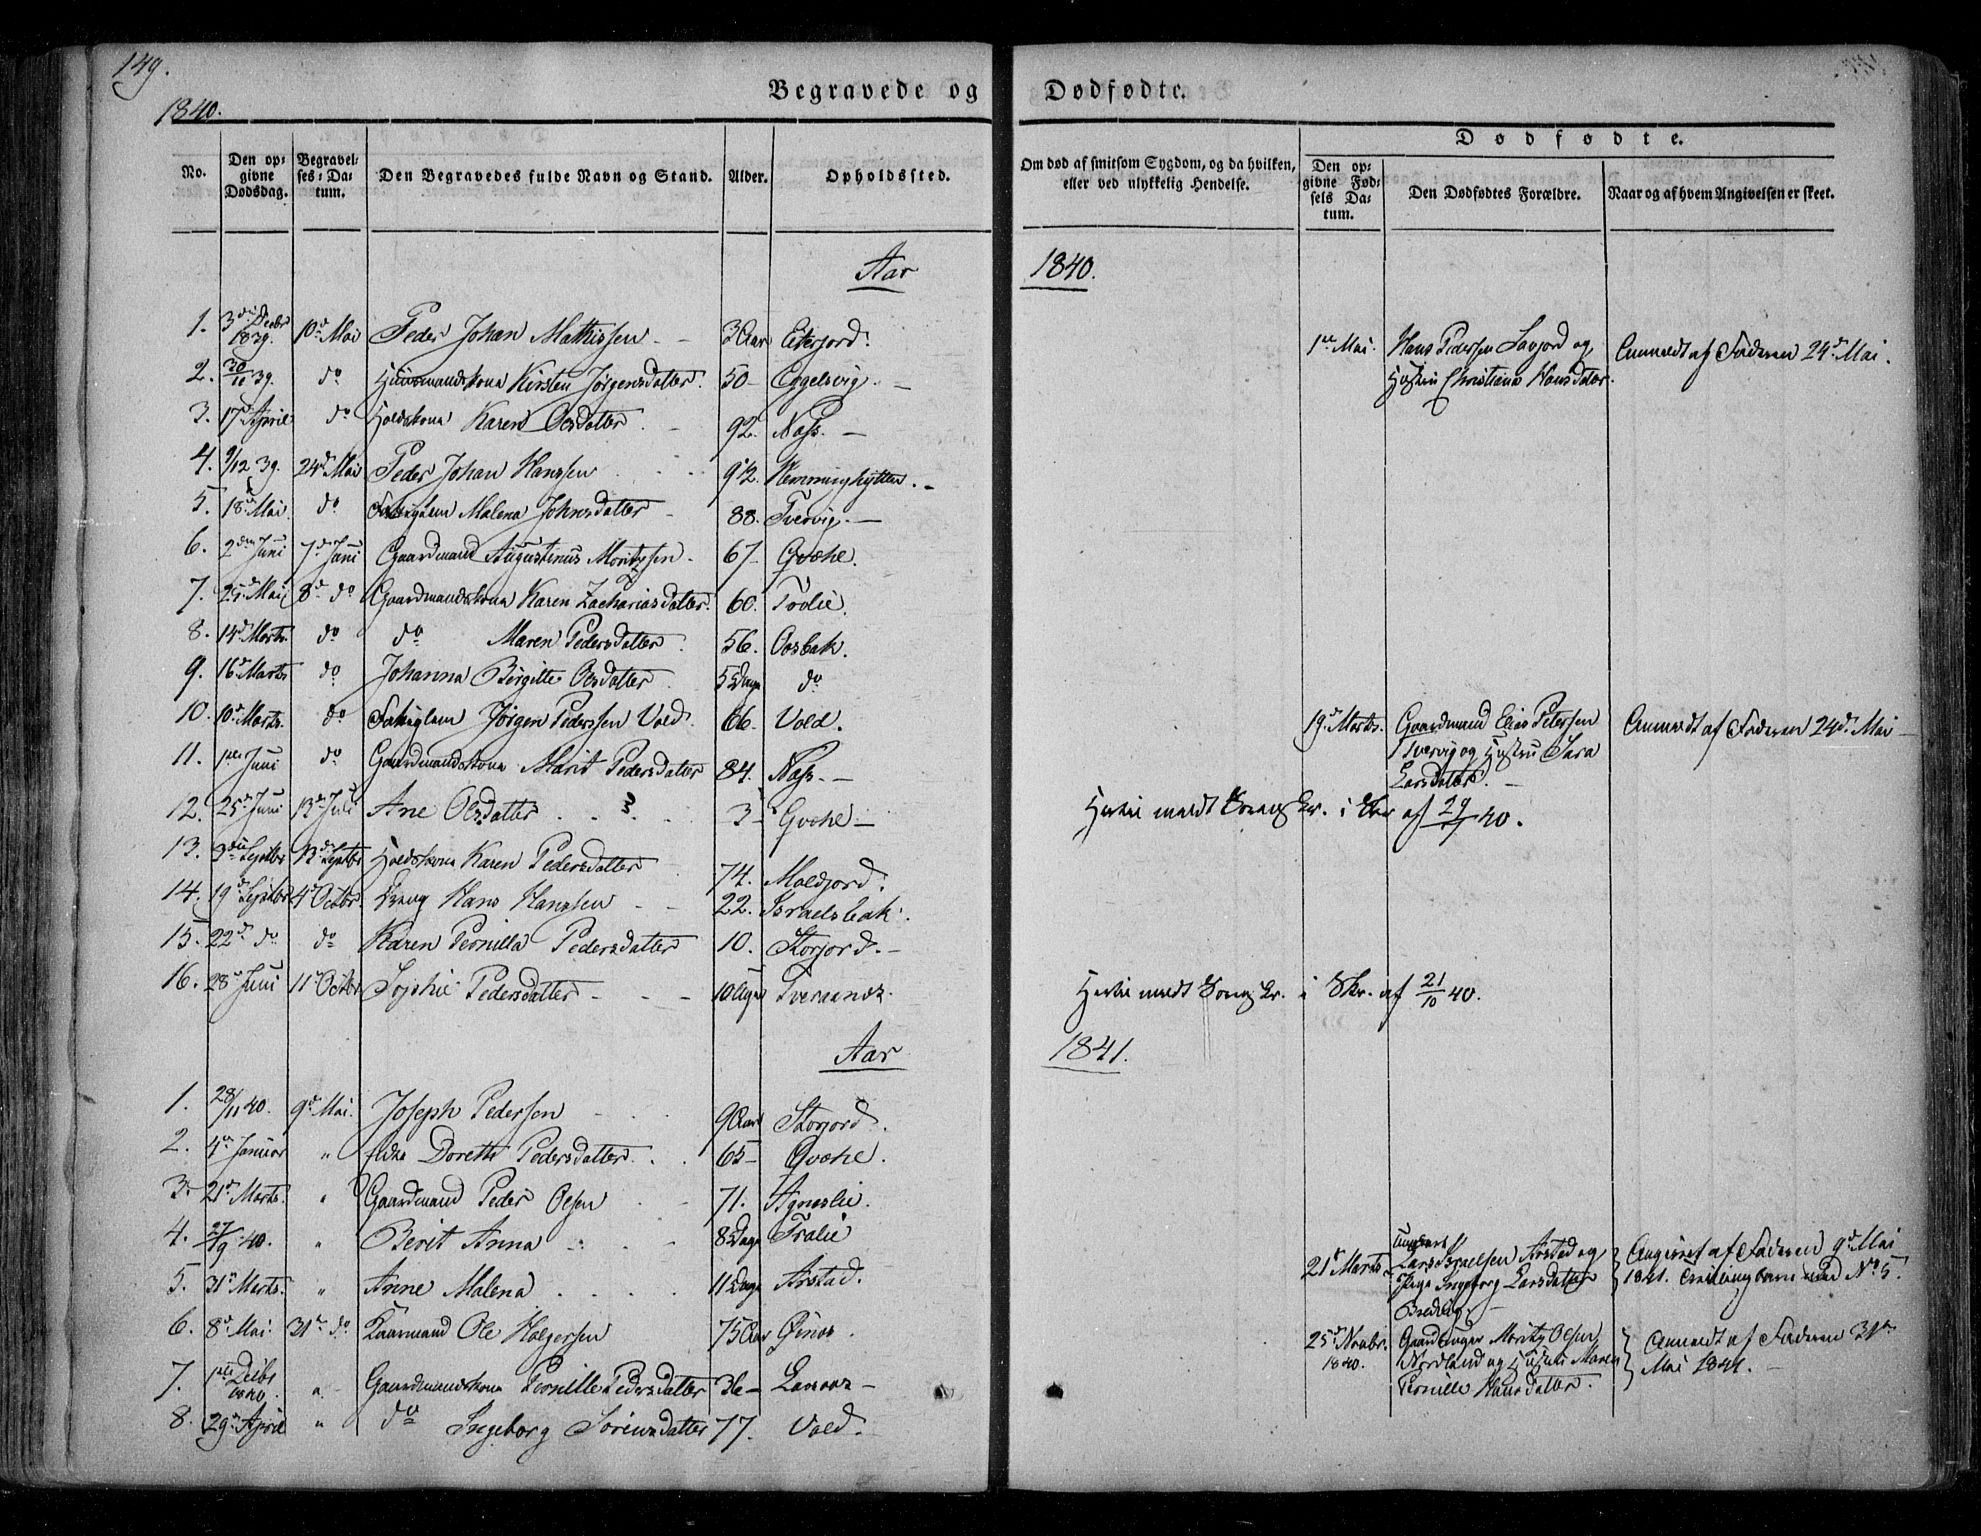 149.
1840.
Begravede og Dødfødte.
Dødfødte.
No. Den opgivne Dødsdag. Begravelses-Datum. Den Begravedes fulde Navn og Stand. Alder. Opholdssted. Om død af smitsom Sygdom, og da hvilken, eller ved ulykkelig Hendelse. Den opgivne Fødsels Datum. Den Dødfødtes Forældre. Naar og af hvem Angivelsen er skeet.
Aar 1840.
1. 3die Decbr 1839. 10de Mai Peder Johan Mathissen 3 Aar Eterjord.
2. 20/10 39. do Huusmandskona Kirsten Jørgensdatter. 50 – Eggelsvig. –
3. 17de April do Holdskona Karen Olsdatter 92. Næss. –
4. 9/12 39. 24de Mai Peder Johan Hanssen 9½. Hemminghytten. –
5. 18de Mai. do Malena Johnsdatter 88. Tvervig. –
6. 2den Juni 7de Juni Gaardmand Augustinus Moritzsen 67 – Qvæhe.
7. 25de Mai 8de do Gaardmandskona Karen Zachariasdatter. 60. Tødlie.
8. 14de Marts. do do Maren Pedersdatter. 56. Oosbak.
9. 16de Marts do Johanna Birgitte Olsdatter 5 Dage do
10. 10de Marts. do Jørgen Pederssen Vold. 66. Vold.
11. 1ste Juni do Gaardmandskona Marit Pedersdatter 84. Næss. –
12. 25de Juni 13de Juli Ane Olsdatter 3 – Qvæhe –
13. 3die Septbr 13de Septbr Holdskona Karen Pedersdatter 74. Moldjord.
14. 19de Septbr 4de Octbr. Dreng Hans Hanssen 22. Israelsbak.
15. 22de do do Karen Pernilla Pedersdatter 10. Storjord. –
16. 28de Juni 11te Octbr Sophie Pedersdatter 10 Uger Tveraanes.
1ste Mai. Hans Pedersen Savjord og
Hustru Christiana Hansdatter.
Anmeldt af Faderen 24de Mai.
19de Marts. Gaardmand Elias Petersen
Tvervig og Hustru Sara
Larsdatter. –
Anmeldt af Faderen 24de Mai –
i Skr af 29/7 40.
i Skr. af 21/10 40.
Aar 1841.
1. 28/11 40. 9de Mai. Joseph Pedersen 9 Aar Storjord.
2. 4de Januar " Dorethe Pedersdatter. 65 – Qvæhe.
3. 21de Marts. " Gaardmand Peder Olsen 71. Agneslie.
4. 27/9 40. " Berit Anna 8 Dage Tralie
5. 31te Marts. " Anne Malena 11 Dage Arstad.
6. 8de Mai. 31te do Kaarmand Ole Holgersen 75 Aar Øinæs.
7. 1ste Decbr 1840. " Gaardmandskona Pernille Pedersdatter 36 –
8. 29de April " do Ingeborg Sørensdatter 77. Vold.
21de Marts Ungkarl Lars Israelsen Arstad og
Pige Ingeborg Larsdatter
Bredvig. –
Angivet af Faderen 9de Mai
1841. Tvillingbarn med No 5.
25de Novbr. 1840. Moritz Olsen
Nordland og Hustru Maren
Pernille Hansdatter.
Anmeldt af Faderen 31te
Mai 1841. –